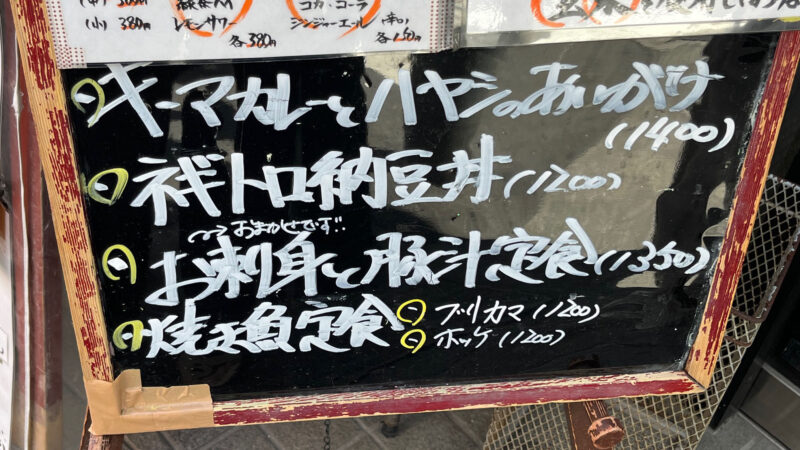 (小) 380円
レモンサワー
各380円
コカ・コーラ
ジンジャーエール (辛口)
各150円
キーマカレーとハヤシのあいがけ
(1400)
ネギトロ納豆丼 (1200)
おまかせです!!
お刺身と豚汁定食 (1350)
焼き魚定食
ブリカマ (1200)
ホッケ (1200)